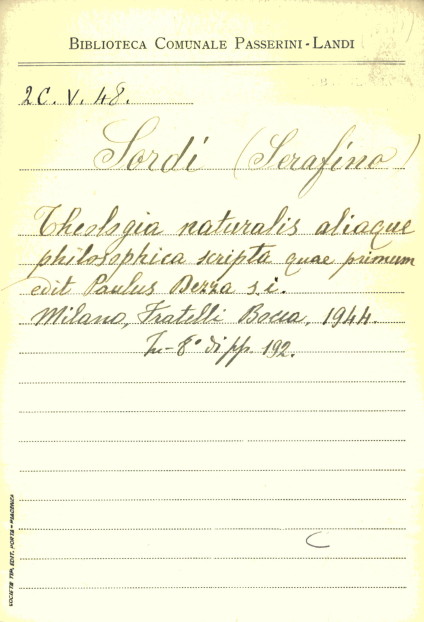 BIBLIOTECA COMUNALE PASSERINI-LANDI
2C. V. 48.
Sordi (Serafino)
Theologia naturalis aliaque
philosophica scripta quae primum
edit Paulus Dezza s.i.
Milano, Fratelli Bocca, 1944.
In-8° di pp. 192.
SOCIETÀ TIP. EDIT. PORTA - PIACENZA